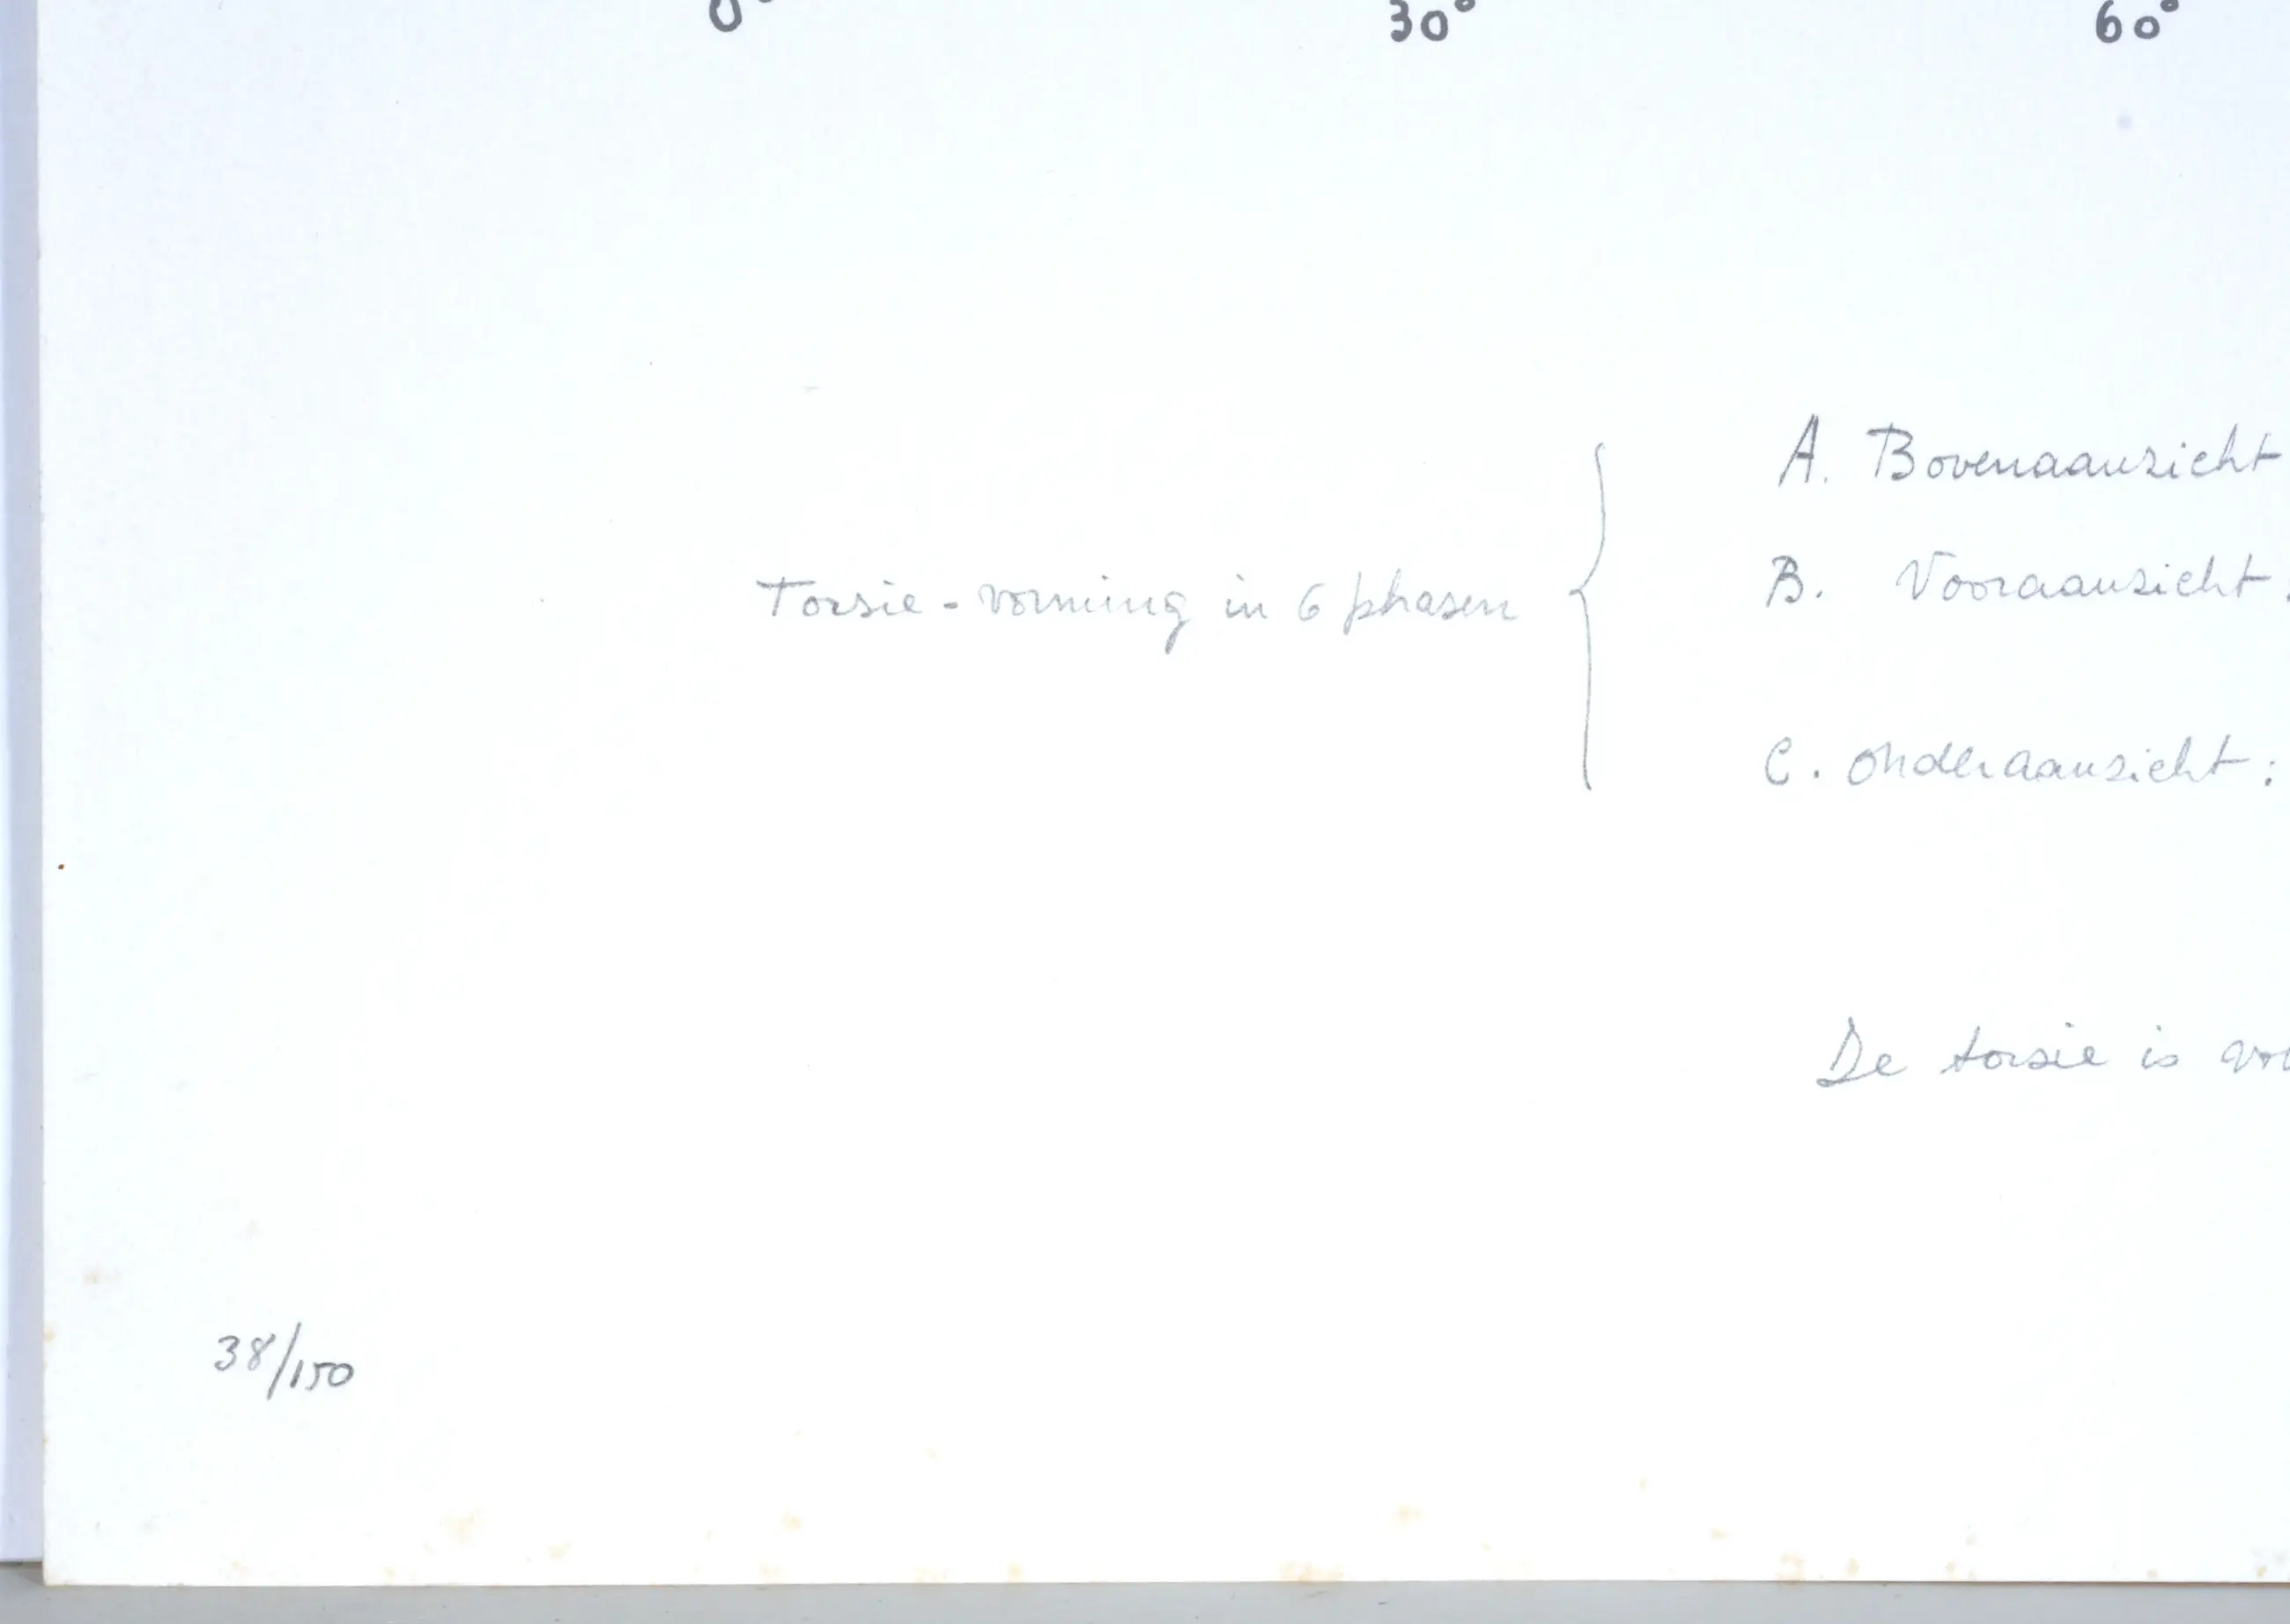 0° 30° 60°
A. Bovenaanzicht
Torsie-vorming in 6 phasen
B. Vooraanzicht.
C. Onderaanzicht:
De torsie is
38/150